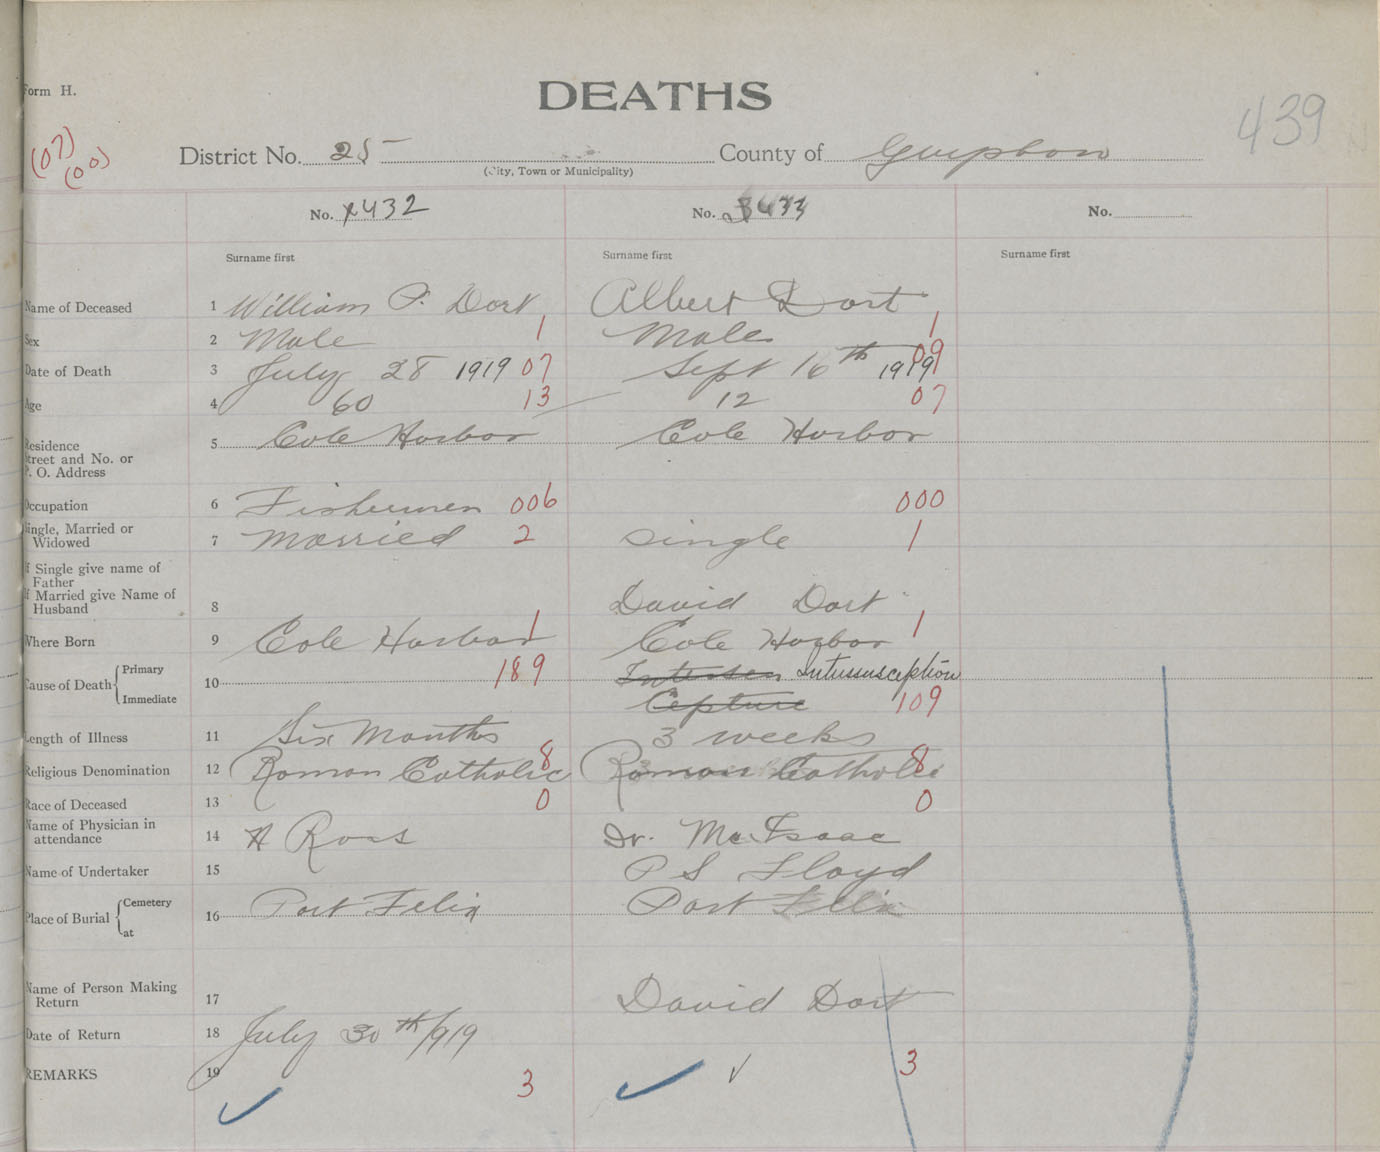 Form H.
DEATHS
439
(07)
(00)
District No. 25 County of Guysboro
(City, Town or Municipality)
No. 2432 No. 3433 No.
Surname first Surname first Surname first
Name of Deceased 1 William P. Dort Albert Dort
Sex 2 Male 1 Male 1
Date of Death 3 July 28 1919 07 Sept 16th 1919 09
Age 4 60 13 12 07
Residence 5 Cole Harbor Cole Harbor
Street and No. or
P. O. Address
Occupation 6 Fishermen 006 000
Single, Married or
Widowed 7 Married 2 Single 1
If Single give name of
Father
If Married give Name of
Husband 8 David Dort
Where Born 9 Cole Harbor 1 Cole Harbor 1
Cause of Death Primary 10 189 Intersen Intussusception
Immediate Cepture 109
Length of Illness 11 Six Months 3 weeks
Religious Denomination 12 Roman Catholic 8 Roman Catholic 8
Race of Deceased 13 0 0
Name of Physician in
attendance 14 A Ross Dr. McIsaac
Name of Undertaker 15 P S Floyd
Place of Burial Cemetery 16 Port Felix Port Felix
at
Name of Person Making
Return 17 David Dort
Date of Return 18 July 30th/919
REMARKS 19 3 3